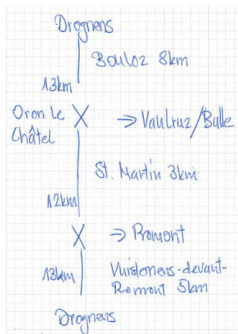 Drognens
Bouloz 8km
13km
Oron le X → Vaulruz/Bulle
Châtel
St. Martin 3km
12km
X → Romont
13km Vuisternens-devant-
Romont 5km
Drognens